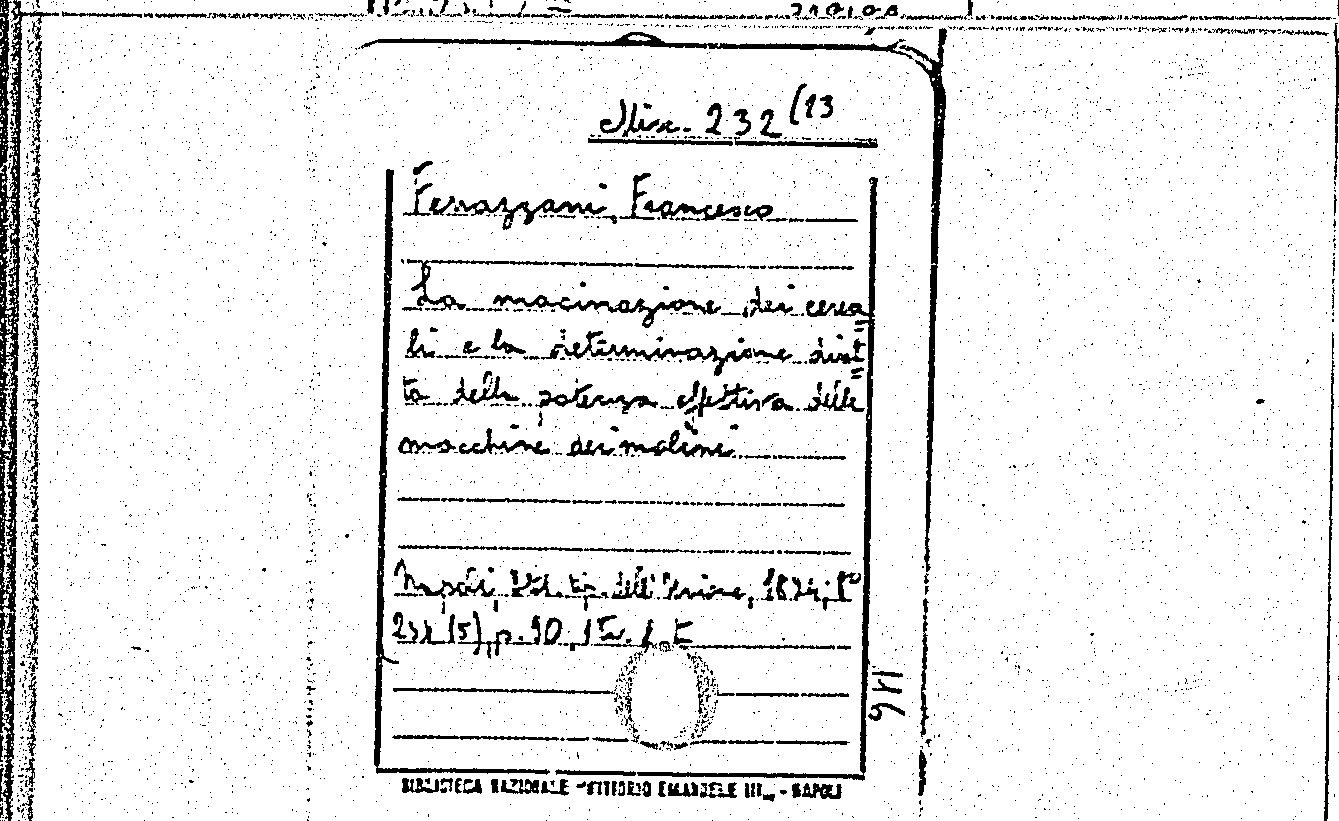 Misc. 232 (13
Ferrazzani, Francesco
La macinazione dei cerea
li e la determinazione diret
ta della potenza effettiva delle
macchine dei molini
Napoli, Stab. tip. dell'Unione, 1874, 8°
p. 90, 1 Tav. f. t.
146
BIBLIOTECA NAZIONALE "VITTORIO EMANUELE III" - NAPOLI